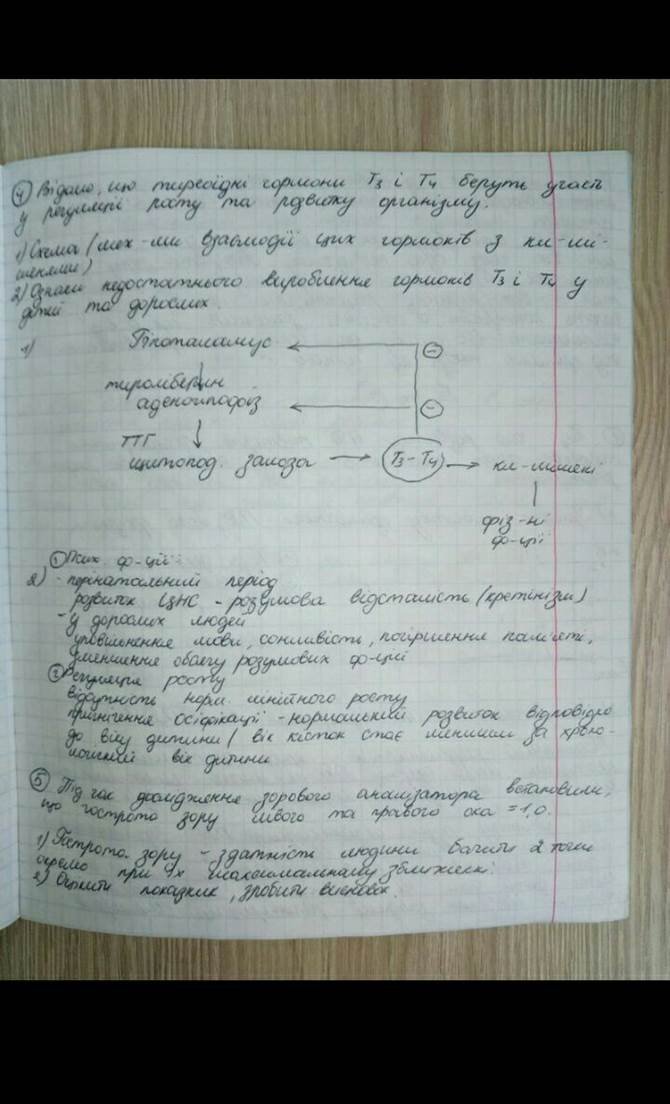 ④ Відомо, що тиреоїдні гормони Т3 і Т4 беруть участь
у регуляції росту та розвитку організму.
1) Схема (мех-ми взаємодії цих гормонів з кл-мі-
шенями)
2) Ознаки недостатнього вироблення гормонів Т3 і Т4 у
дітей та дорослих.
1) Гіпоталамус
тироліберин
аденогіпофіз
ТТГ
щитопод. залоза
Т3 – Т4
кл-мішені
фіз-ні
ф-ції
① Псих. ф-ції
2) - перінатальний період
розвиток ЦНС - розумова відсталість (кретинізм)
- у дорослих людей
уповільнення мови, сонливість, погіршення пам'яті,
зменшення обсягу розумових ф-цій
② Регуляція росту
відсутність норм. лінійного росту
пригнічення осіфікації - нормальний розвиток відповідно
до віку дитини (вік кісток стає меншим за хроно-
логічний вік дитини
⑤ Під час дослідження зорового аналізатора встановили,
що гострота зору лівого та правого ока = 1,0.
1) Гострота зору - здатність людини бачити 2 точки
окремо при їх максимальному зближенні.
2) Оцінити показник, зробити висновок.